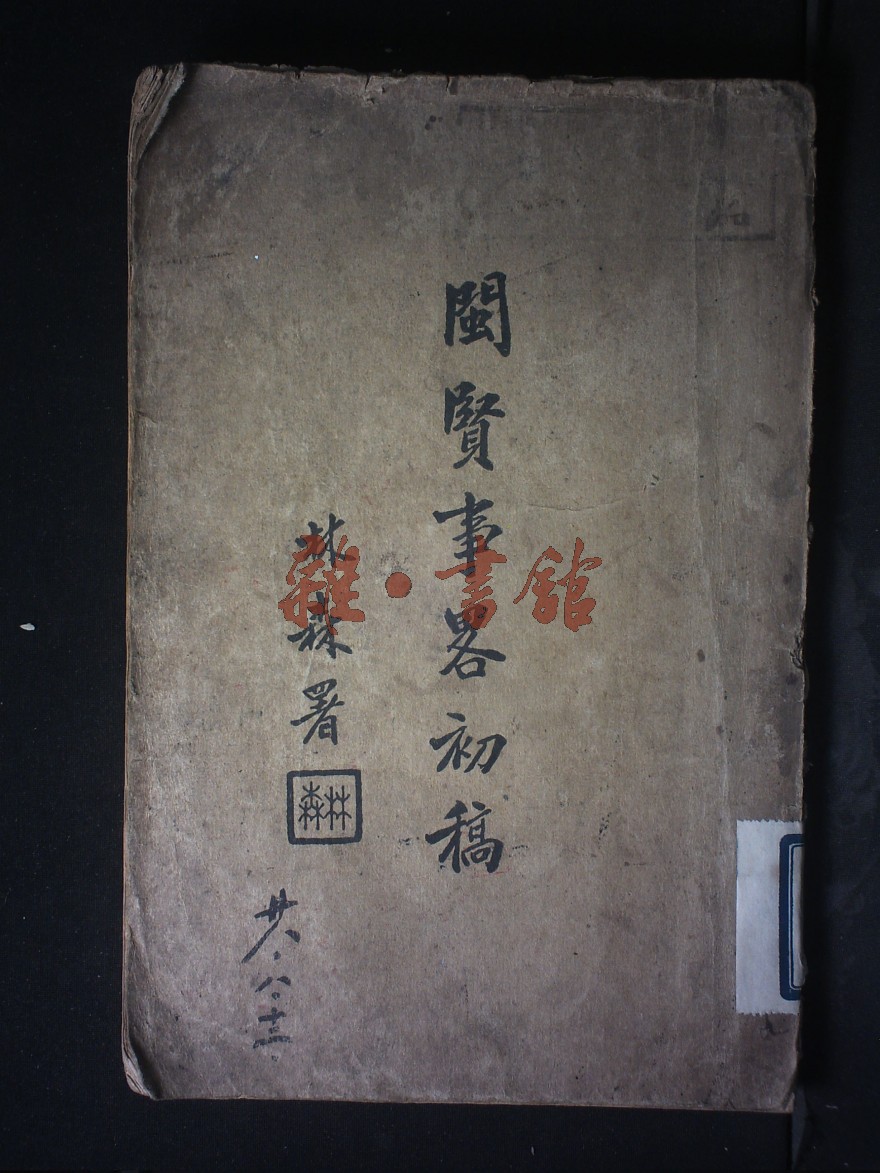 閩賢事畧初稿
林森署
林森
廿八.八.十三.
雜·書館